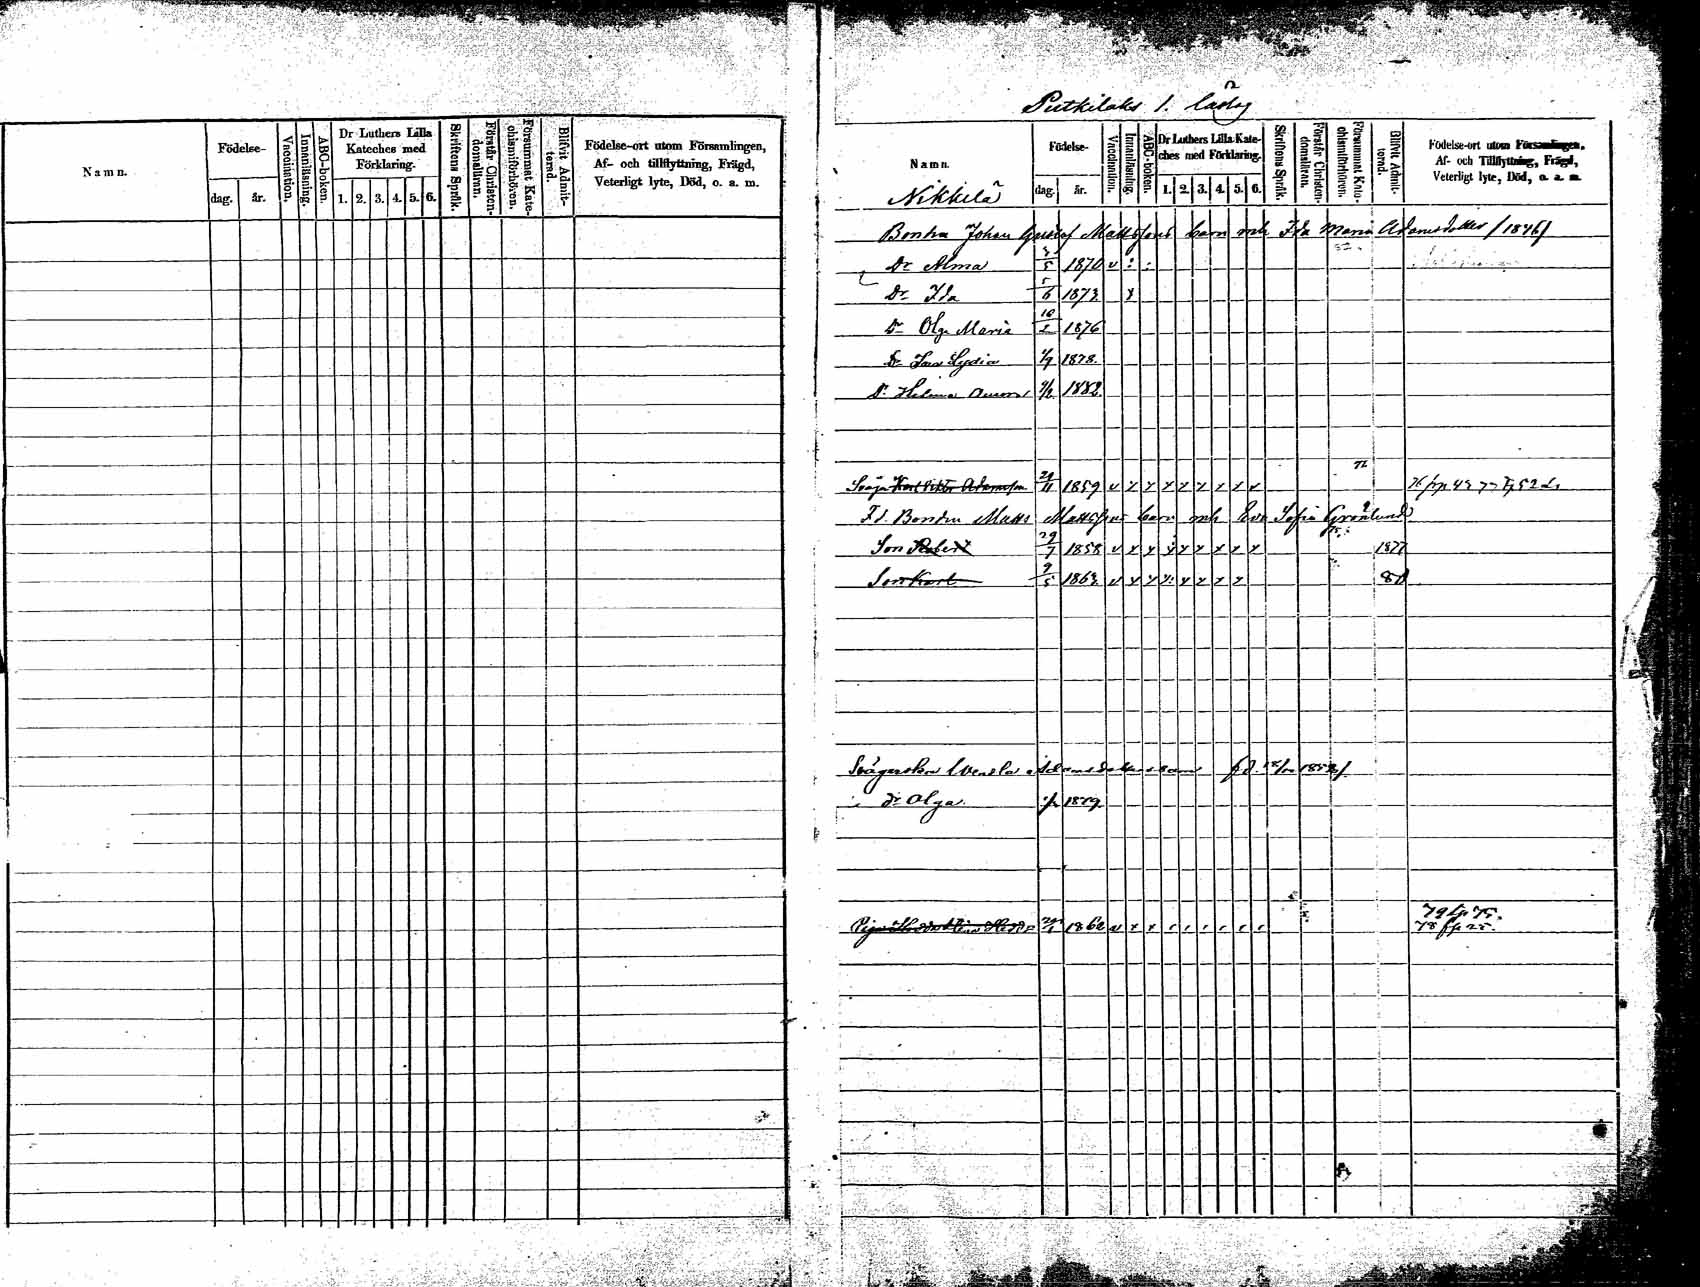 Namn.
Födelse-
dag.
år.
Vaccination.
Innanläsning.
ABC-boken.
Dr Luthers Lilla
Kateches med
Förklaring.
1. 2. 3. 4. 5. 6.
Skriftens Språk.
Förstår Christen-
domsläran.
Försummat Kate-
chismiförhören.
Blifvit Admit-
terad.
Födelse-ort utom Församlingen,
Af- och tillflyttning, Frägd,
Veterligt lyte, Död, o. a. m.
Putkilaks 1.
Namn.
Nikkilä
Födelse-
dag.
år.
Vaccination.
Innanläsning.
ABC-boken.
Dr Luthers Lilla Kate-
ches med Förklaring.
1. 2. 3. 4. 5. 6.
Skriftens Språk.
Förstår Christen-
domsläran.
Försummat Kate-
chismiförhören.
Blifvit Admit-
terad.
Födelse-ort utom Församlingen,
Af- och Tillflyttning, Frägd,
Veterligt lyte, Död, o. a. m.
Bonden Johan Gustaf Mattsson barn mh Ida Maria Adamsdotter /1846/
Dr Alma 3/5 1870 v
Dr Ida 5/6 1873
Dr Olga Maria 10/2 1876
Dr Ina Lydia 1/9 1878.
Dr Helena 1882
Svåg. Karl Viktor Adamsson 29/11 1859 v x x x x x x x v
Fd. Bonden Matts Mattssons barn mh Eva Sofia Grönlund
Son Robert 29/7 1858 v x x x x x x x x 1877
Son Karl 9/5 1863 v x x x x x x x 81
Svägerskan Wendla Adamsdotters barn fd. 1852/
dr Olga. 1879.
Pig. 1862 v x x
79 fp 75.
78 fp 25.